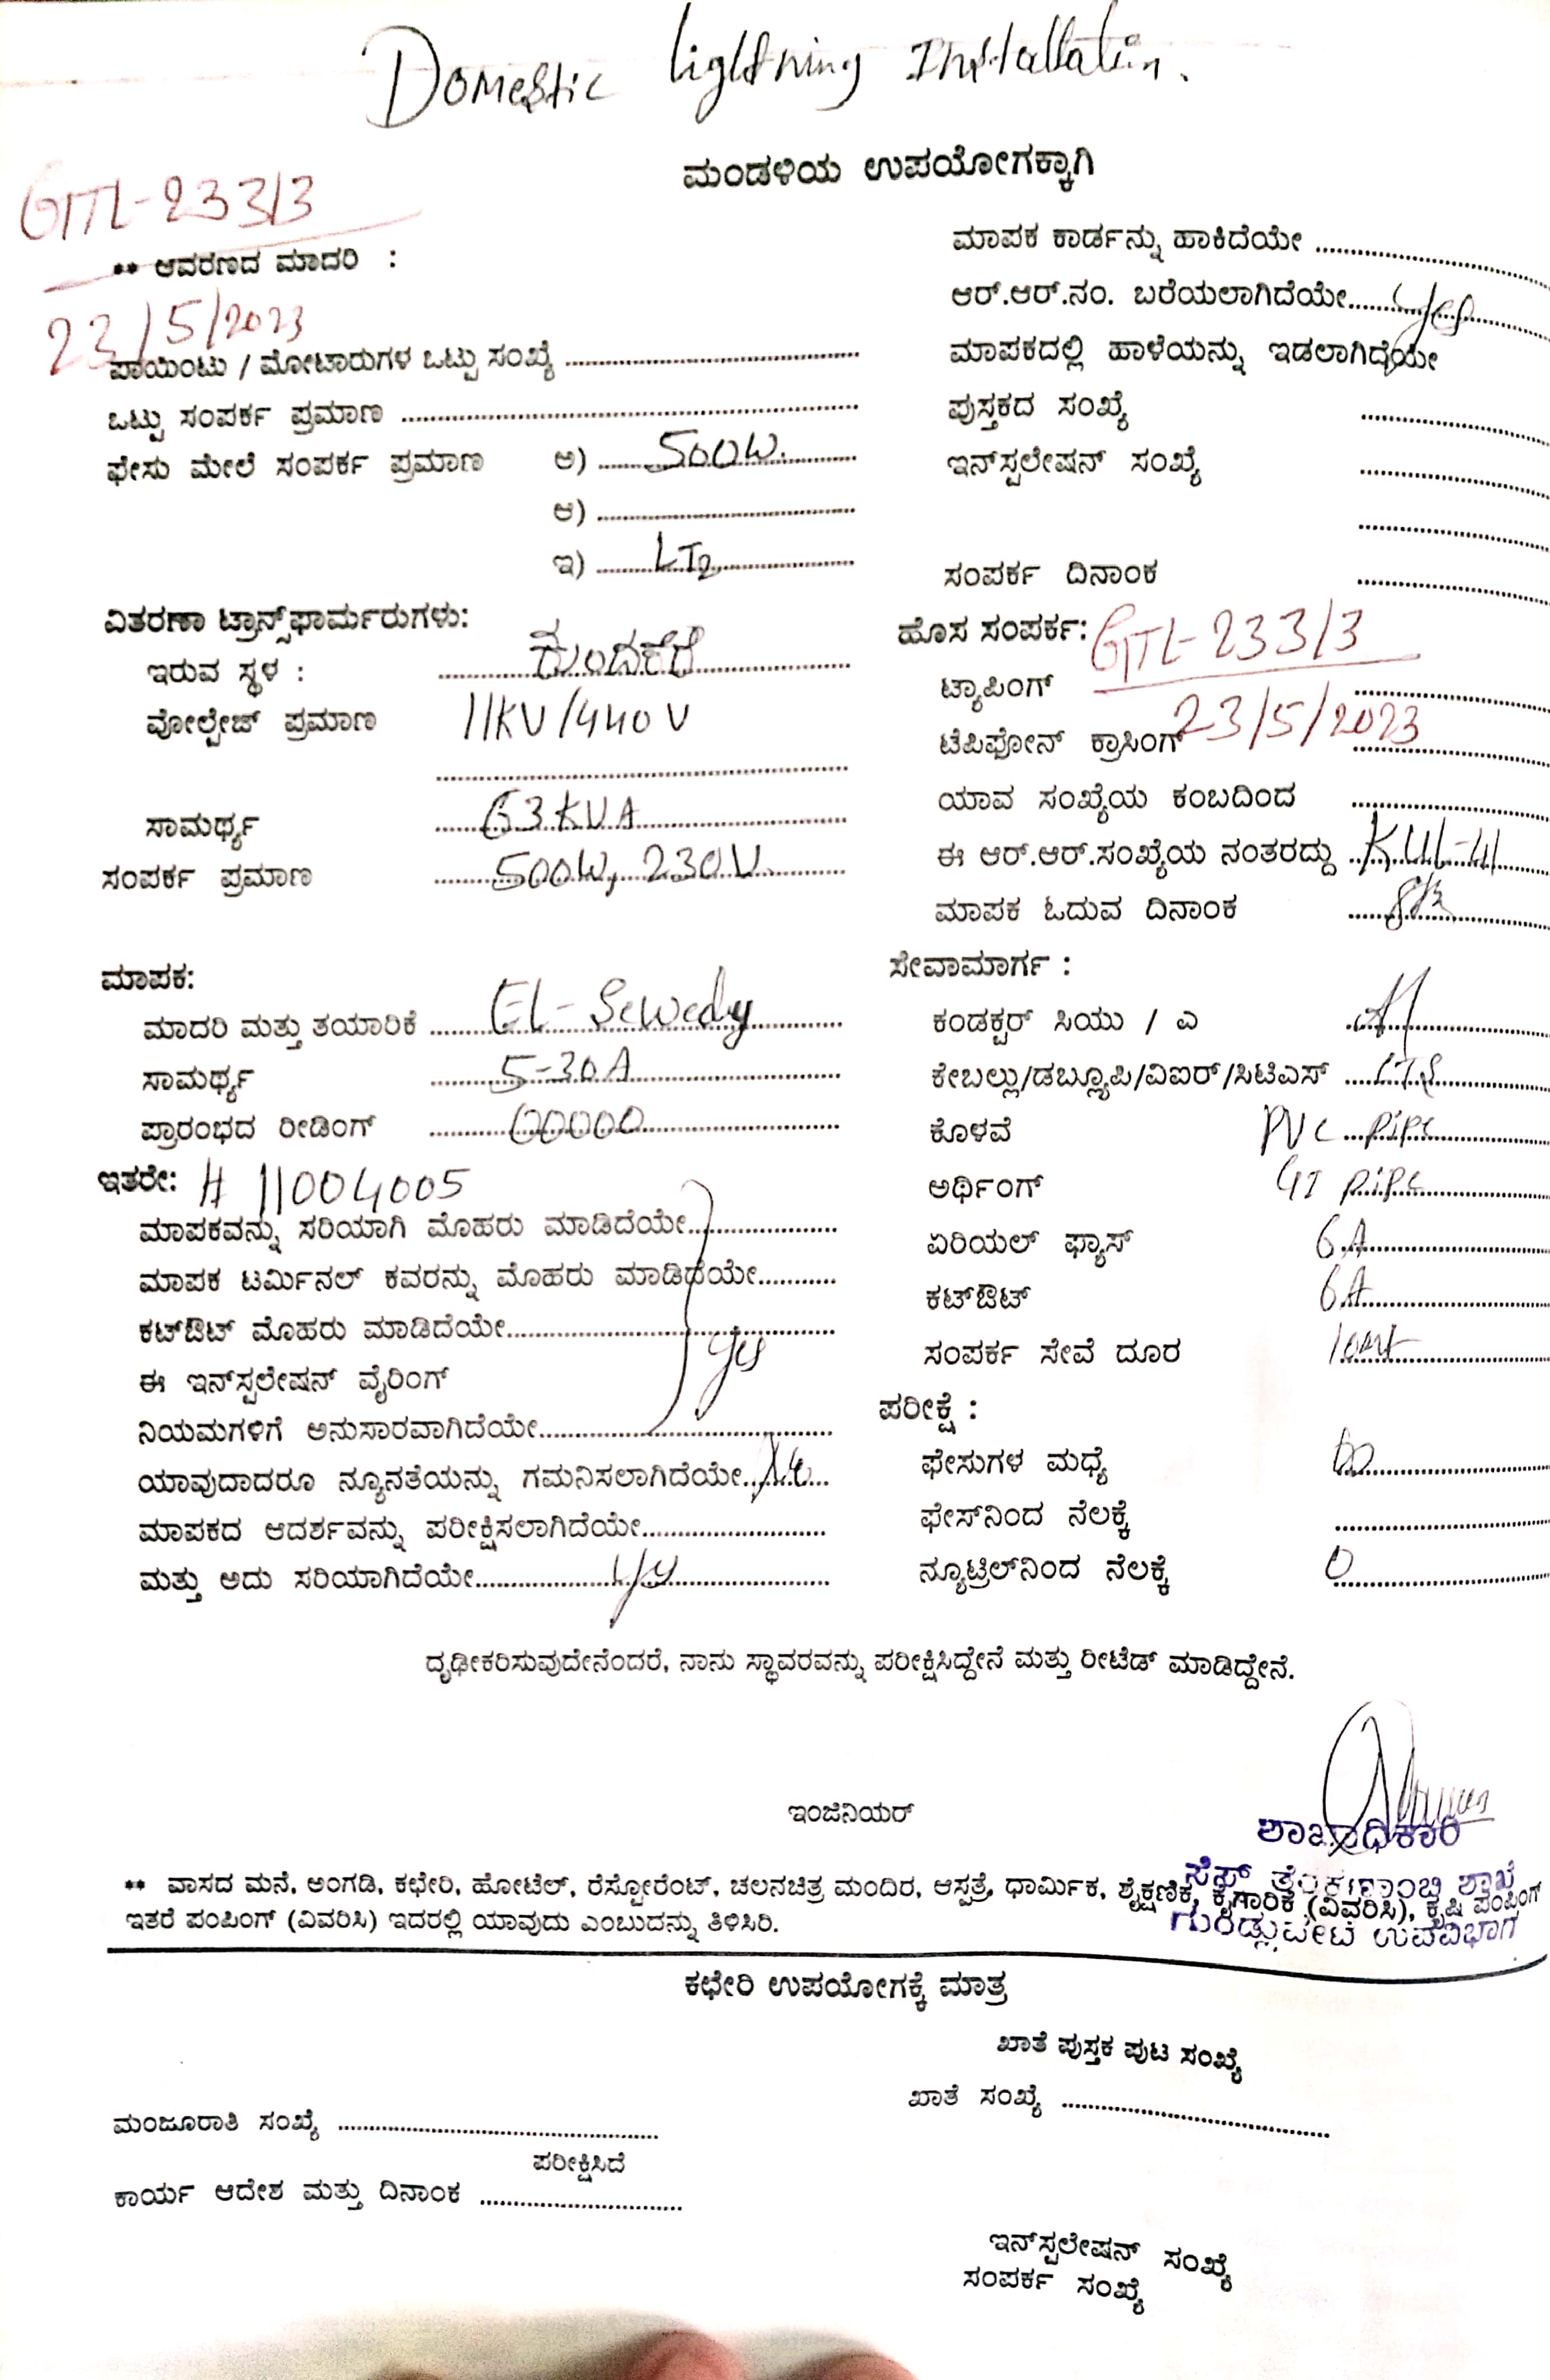 Domestic lightning Installation.
ಮಂಡಳಿಯ ಉಪಯೋಗಕ್ಕಾಗಿ
GTL-233/3
** ಆವರಣದ ಮಾದರಿ :
23/5/2023
ಪಾಯಿಂಟು / ಮೋಟಾರುಗಳ ಒಟ್ಟು ಸಂಖ್ಯೆ
ಒಟ್ಟು ಸಂಪರ್ಕ ಪ್ರಮಾಣ
ಫೇಸು ಮೇಲೆ ಸಂಪರ್ಕ ಪ್ರಮಾಣ ಅ) 500W.
ಆ)
ಇ) LT2
ವಿತರಣಾ ಟ್ರಾನ್ಸ್‌ಫಾರ್ಮರುಗಳು:
ಇರುವ ಸ್ಥಳ :
ವೋಲ್ಟೇಜ್ ಪ್ರಮಾಣ 11KV/440V
ಸಾಮರ್ಥ್ಯ 63KVA
ಸಂಪರ್ಕ ಪ್ರಮಾಣ 500W, 230V.
ಮಾಪಕ:
ಮಾದರಿ ಮತ್ತು ತಯಾರಿಕೆ EL-Sewedy
ಸಾಮರ್ಥ್ಯ 5-30A
ಪ್ರಾರಂಭದ ರೀಡಿಂಗ್ 00000
ಇತರೇ: # 11004005
ಮಾಪಕವನ್ನು ಸರಿಯಾಗಿ ಮೊಹರು ಮಾಡಿದೆಯೇ
ಮಾಪಕ ಟರ್ಮಿನಲ್ ಕವರನ್ನು ಮೊಹರು ಮಾಡಿದೆಯೇ
ಕಟ್‌ಔಟ್ ಮೊಹರು ಮಾಡಿದೆಯೇ yes
ಈ ಇನ್‌ಸ್ಟಲೇಷನ್ ವೈರಿಂಗ್
ನಿಯಮಗಳಿಗೆ ಅನುಸಾರವಾಗಿದೆಯೇ
ಯಾವುದಾದರೂ ನ್ಯೂನತೆಯನ್ನು ಗಮನಿಸಲಾಗಿದೆಯೇ No
ಮಾಪಕದ ಆದರ್ಶವನ್ನು ಪರೀಕ್ಷಿಸಲಾಗಿದೆಯೇ
ಮತ್ತು ಅದು ಸರಿಯಾಗಿದೆಯೇ yes
ಮಾಪಕ ಕಾರ್ಡನ್ನು ಹಾಕಿದೆಯೇ
ಆರ್.ಆರ್.ನಂ. ಬರೆಯಲಾಗಿದೆಯೇ yes
ಮಾಪಕದಲ್ಲಿ ಹಾಳೆಯನ್ನು ಇಡಲಾಗಿದೆಯೇ
ಪುಸ್ತಕದ ಸಂಖ್ಯೆ
ಇನ್‌ಸ್ಟಲೇಷನ್ ಸಂಖ್ಯೆ
ಸಂಪರ್ಕ ದಿನಾಂಕ
ಹೊಸ ಸಂಪರ್ಕ: GTL-233/3
ಟ್ಯಾಪಿಂಗ್
ಟೆಪಿಫೋನ್ ಕ್ರಾಸಿಂಗ್ 23/5/2023
ಯಾವ ಸಂಖ್ಯೆಯ ಕಂಬದಿಂದ
ಈ ಆರ್.ಆರ್.ಸಂಖ್ಯೆಯ ನಂತರದ್ದು
ಮಾಪಕ ಓದುವ ದಿನಾಂಕ
ಸೇವಾಮಾರ್ಗ :
ಕಂಡಕ್ಟರ್ ಸಿಯು / ಎ Al
ಕೇಬಲ್ಲು/ಡಬ್ಲ್ಯೂಪಿ/ವಿಐರ್/ಸಿಟಿಎಸ್ CTS
ಕೊಳವೆ PVC pipe
ಅರ್ಥಿಂಗ್ GI pipe
ಏರಿಯಲ್ ಫ್ಯಾಸ್ 6A
ಕಟ್‌ಔಟ್ 6A
ಸಂಪರ್ಕ ಸೇವೆ ದೂರ
ಪರೀಕ್ಷೆ :
ಫೇಸುಗಳ ಮಧ್ಯೆ
ಫೇಸ್‌ನಿಂದ ನೆಲಕ್ಕೆ
ನ್ಯೂಟ್ರಿಲ್‌ನಿಂದ ನೆಲಕ್ಕೆ 0
ದೃಢೀಕರಿಸುವುದೇನೆಂದರೆ, ನಾನು ಸ್ಥಾವರವನ್ನು ಪರೀಕ್ಷಿಸಿದ್ದೇನೆ ಮತ್ತು ರೀಟೆಡ್ ಮಾಡಿದ್ದೇನೆ.
ಇಂಜಿನಿಯರ್
ಶಾಖಾಧಿಕಾರಿ
ಸೆಸ್ಕ್ ತೆರಕಣಾಂಬಿ ಶಾಖೆ
ಗುಂಡ್ಲುಪೇಟೆ ಉಪವಿಭಾಗ
** ವಾಸದ ಮನೆ, ಅಂಗಡಿ, ಕಛೇರಿ, ಹೋಟೆಲ್, ರೆಸ್ಟೋರೆಂಟ್, ಚಲನಚಿತ್ರ ಮಂದಿರ, ಆಸ್ಪತ್ರೆ, ಧಾರ್ಮಿಕ, ಶೈಕ್ಷಣಿಕ, ಕೈಗಾರಿಕೆ (ವಿವರಿಸಿ), ಕೃಷಿ ಪಂಪಿಂಗ್
ಇತರೆ ಪಂಪಿಂಗ್ (ವಿವರಿಸಿ) ಇದರಲ್ಲಿ ಯಾವುದು ಎಂಬುದನ್ನು ತಿಳಿಸಿರಿ.
ಕಛೇರಿ ಉಪಯೋಗಕ್ಕೆ ಮಾತ್ರ
ಖಾತೆ ಪುಸ್ತಕ ಪುಟ ಸಂಖ್ಯೆ
ಖಾತೆ ಸಂಖ್ಯೆ
ಮಂಜೂರಾತಿ ಸಂಖ್ಯೆ
ಪರೀಕ್ಷಿಸಿದೆ
ಕಾರ್ಯ ಆದೇಶ ಮತ್ತು ದಿನಾಂಕ
ಇನ್‌ಸ್ಟಲೇಷನ್ ಸಂಖ್ಯೆ
ಸಂಪರ್ಕ ಸಂಖ್ಯೆ